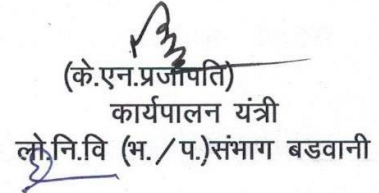 (के.एन.प्रजापति)
कार्यपालन यंत्री
लो.नि.वि (भ./प.)संभाग बडवानी